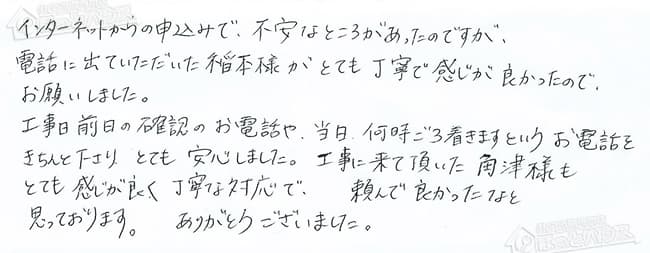 インターネットからの申込みで、不安なところがあったのですが、
電話に出ていただいた稲本様がとても丁寧で感じが良かったので、
お願いしました。
工事日前日の確認のお電話や、当日、何時ごろ着きますというお電話を
きちんと下さり、とても安心しました。工事に来て頂いた角津様も
とても感じが良く丁寧な対応で、頼んで良かったなと
思っております。ありがとうございました。